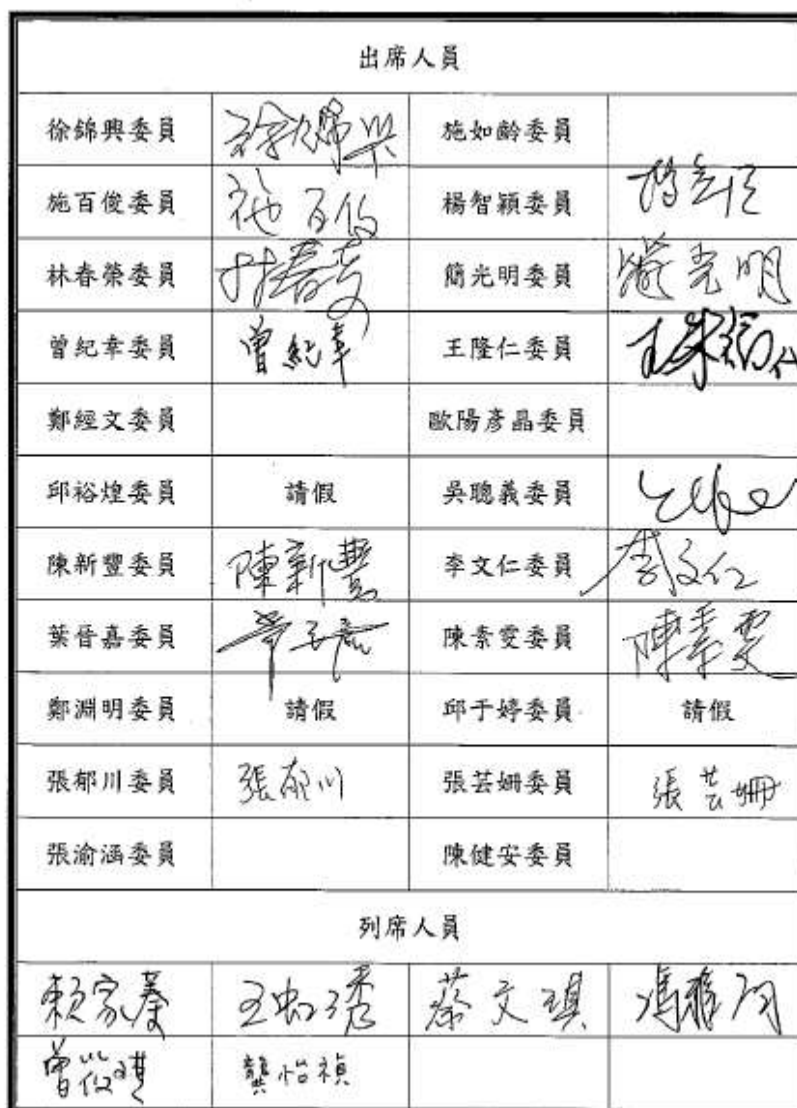 出席人員
徐錦興委員 徐錦興 施如齡委員
施百俊委員 施百俊 楊智穎委員
林春榮委員 林春榮 簡光明委員 簡光明
曾紀幸委員 曾紀幸 王隆仁委員
鄭經文委員 歐陽彥晶委員
邱裕煌委員 請假 吳聰義委員
陳新豐委員 陳新豐 李文仁委員 李文仁
葉晉嘉委員 陳素雯委員 陳素雯
鄭淵明委員 請假 邱于婷委員 請假
張郁川委員 張郁川 張芸姍委員 張芸姍
張渝涵委員 陳健安委員
列席人員
賴家蓁 蔡文琪
龔怡禎